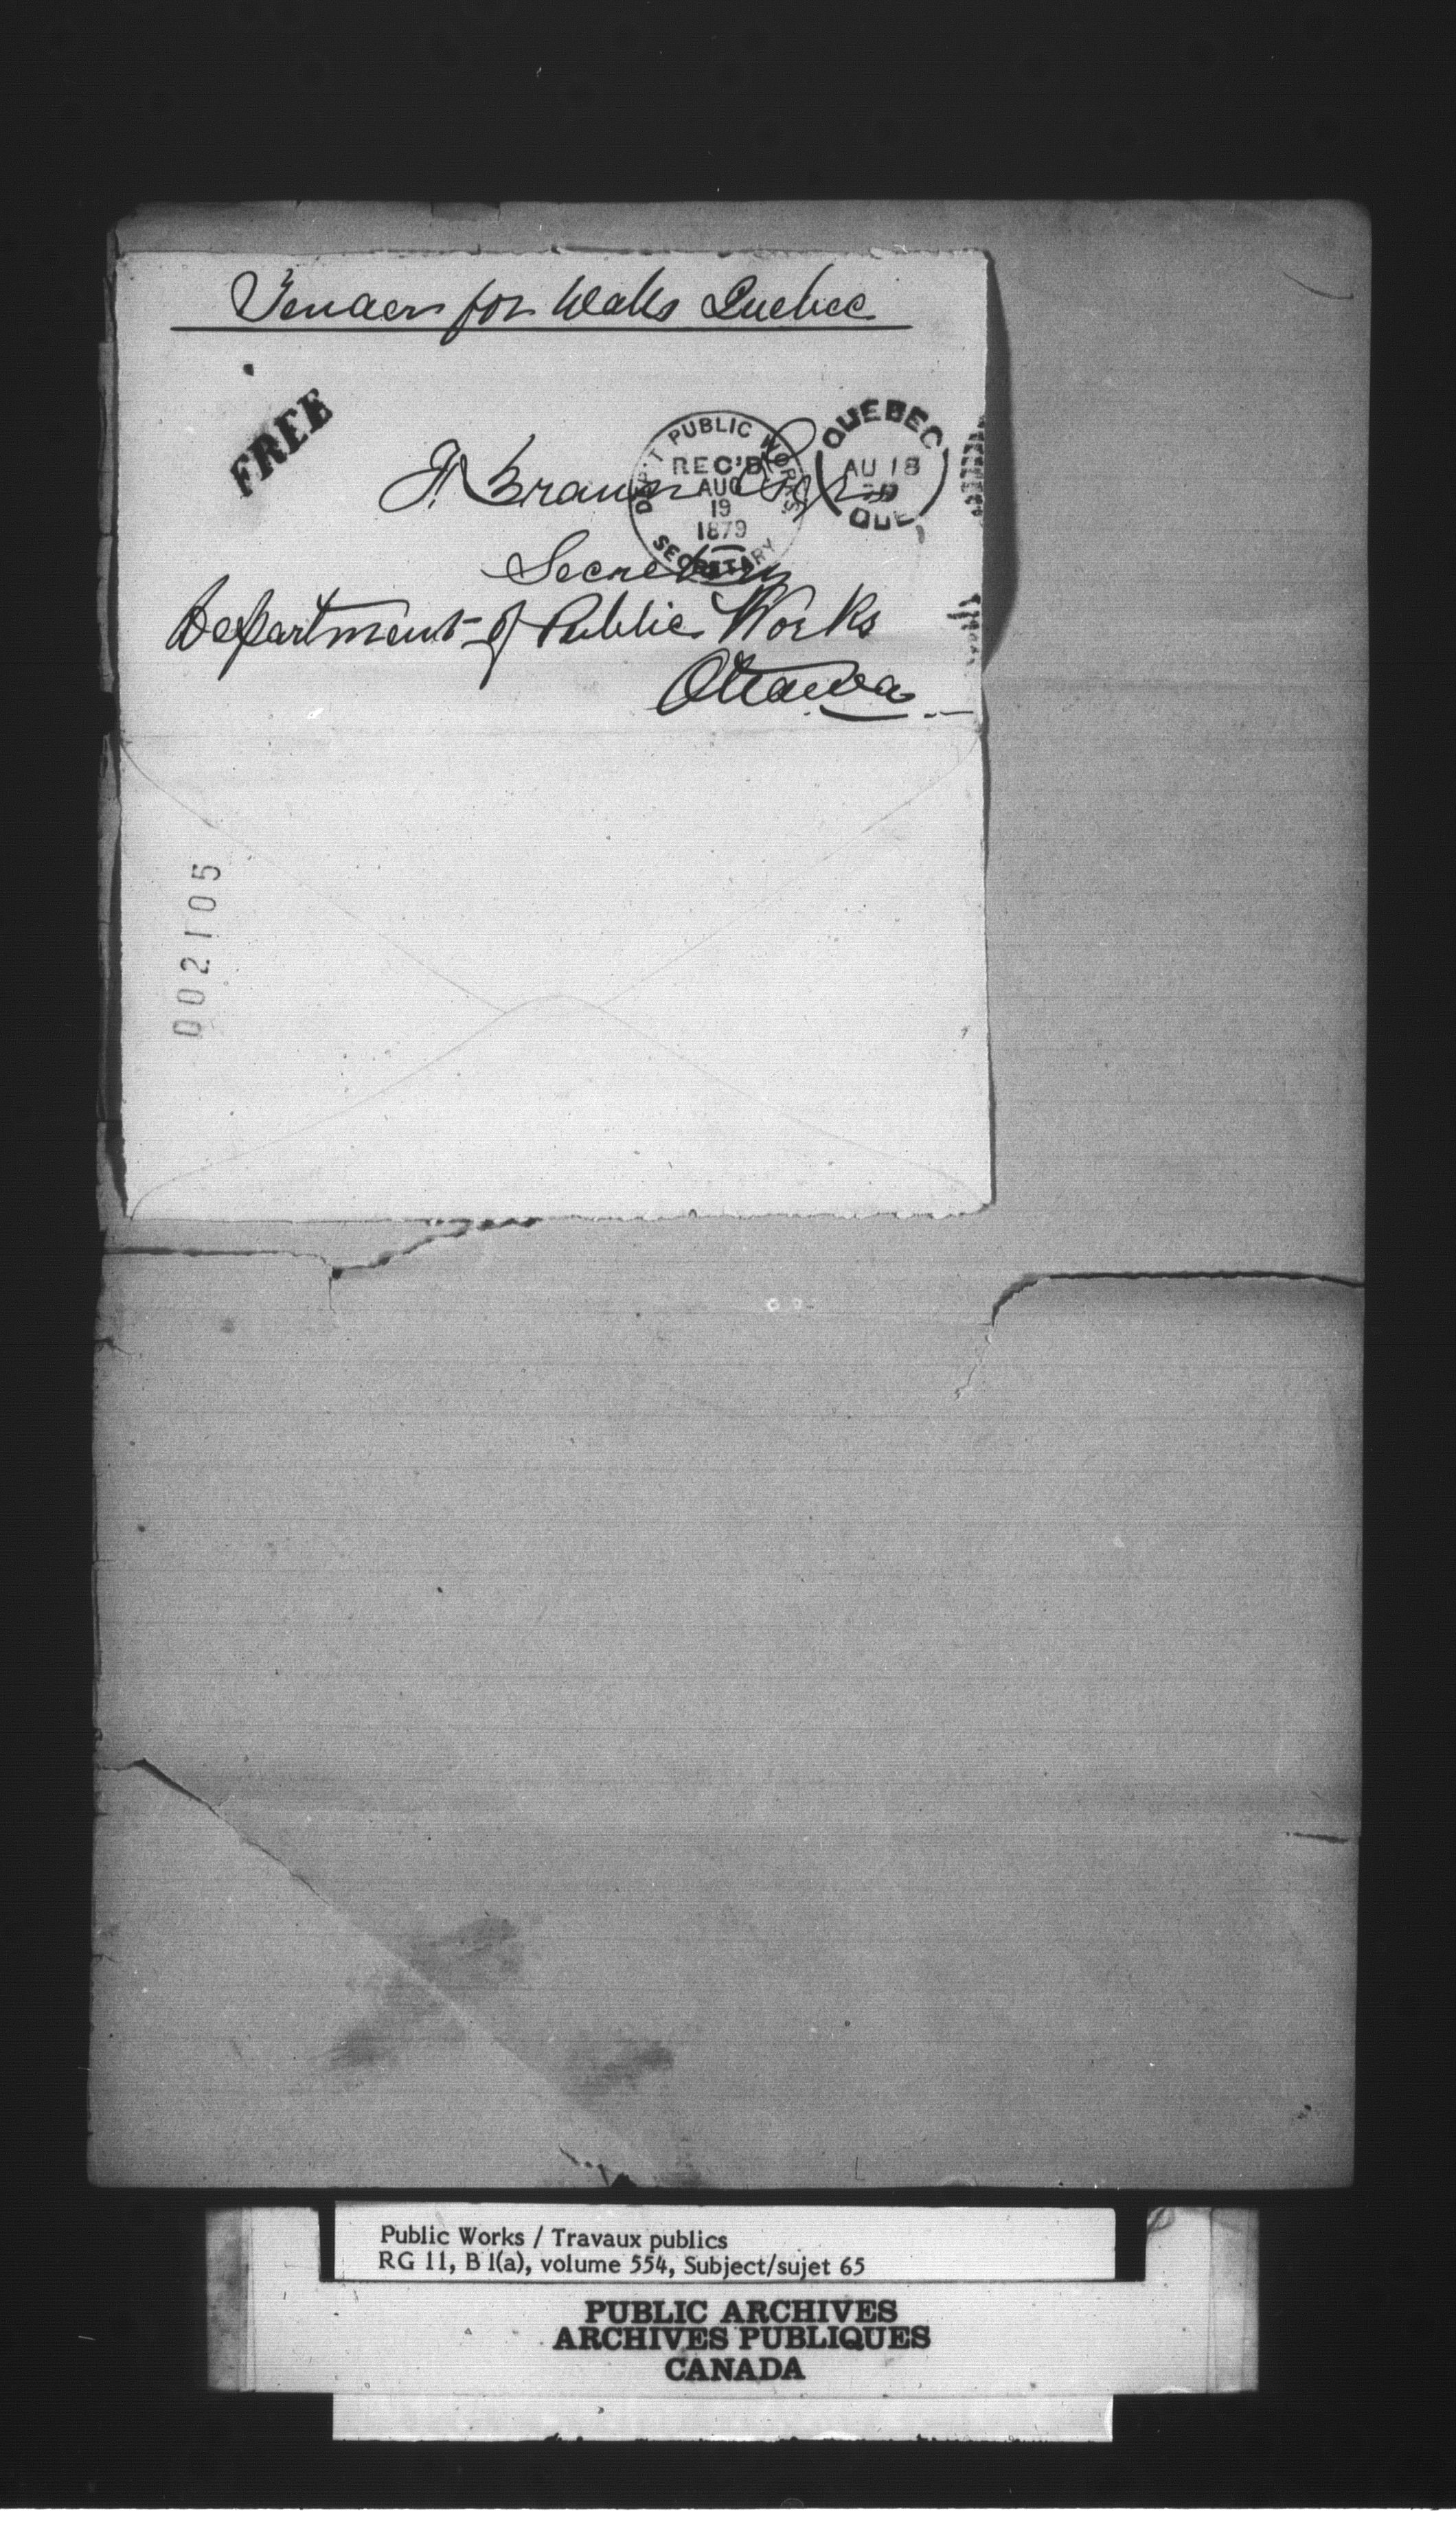 Tender for Walls Quebec
FREE
F. Braun Esqr
DEP'T PUBLIC WORKS
REC'D
AUG
19
1879
SECRETARY
QUEBEC
AU 18
79
QUE
Secretary
Department of Public Works
Ottawa
002105
Public Works / Travaux publics
RG 11, B 1(a), volume 554, Subject/sujet 65
PUBLIC ARCHIVES
ARCHIVES PUBLIQUES
CANADA